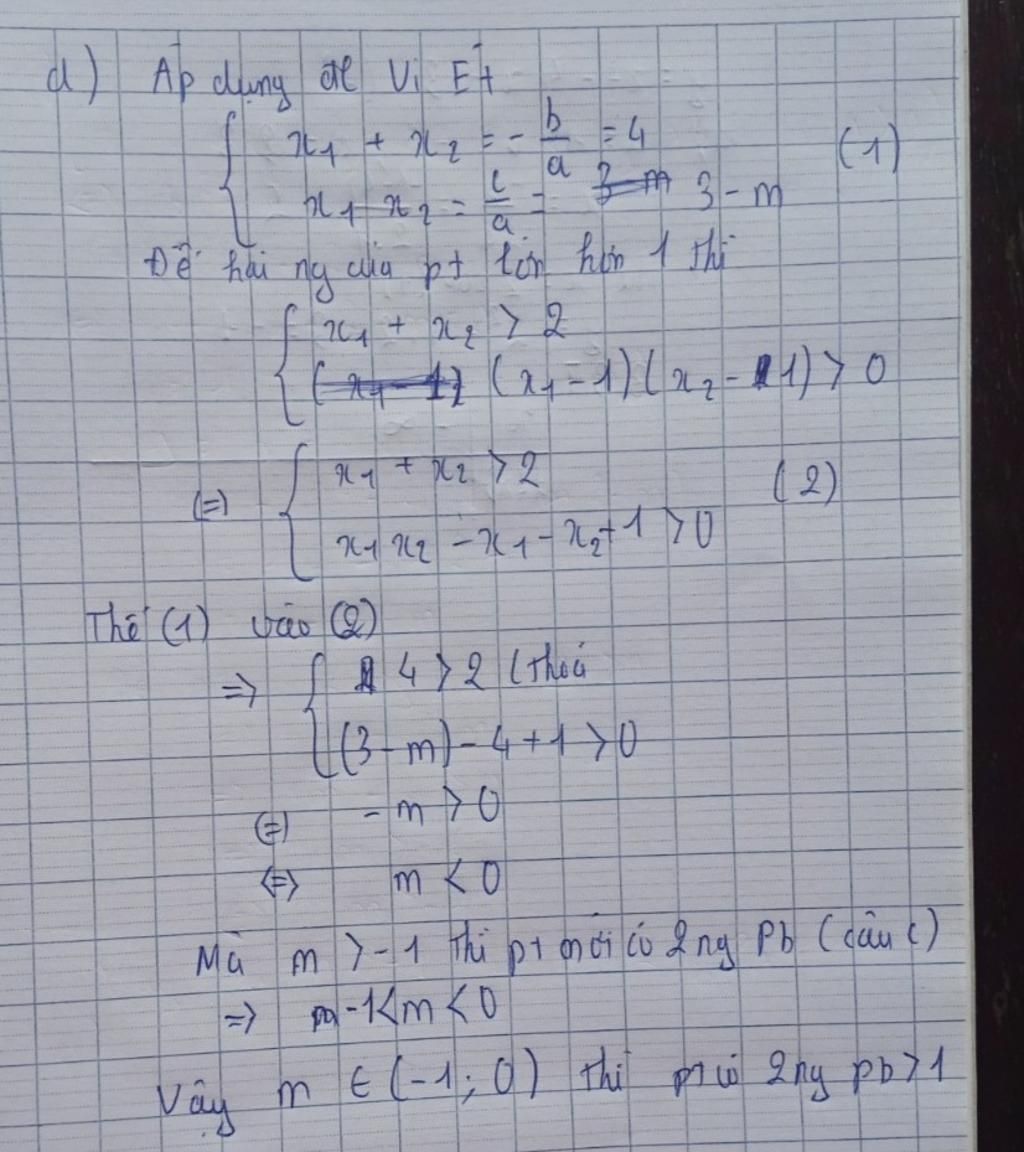 d) Áp dụng đl Vi Ét
x₁ + x₂ = - b/a = 4
(1)
x₁ x₂ = c/a = 3 - m
Để hai ng của pt lớn hơn 1 thì
x₁ + x₂ > 2
(x₁ - 1)(x₂ - 1) > 0
(=) x₁ + x₂ > 2
(2)
x₁ x₂ - x₁ - x₂ + 1 > 0
Thế (1) vào (2)
=> 4 > 2 (thoả
(3 - m) - 4 + 1 > 0
(=) - m > 0
<=> m < 0
Mà m > -1 thì pt mới có 2 ng pb (câu c)
=> -1 < m < 0
Vậy m ∈ (-1; 0) thì pt có 2 ng pb > 1